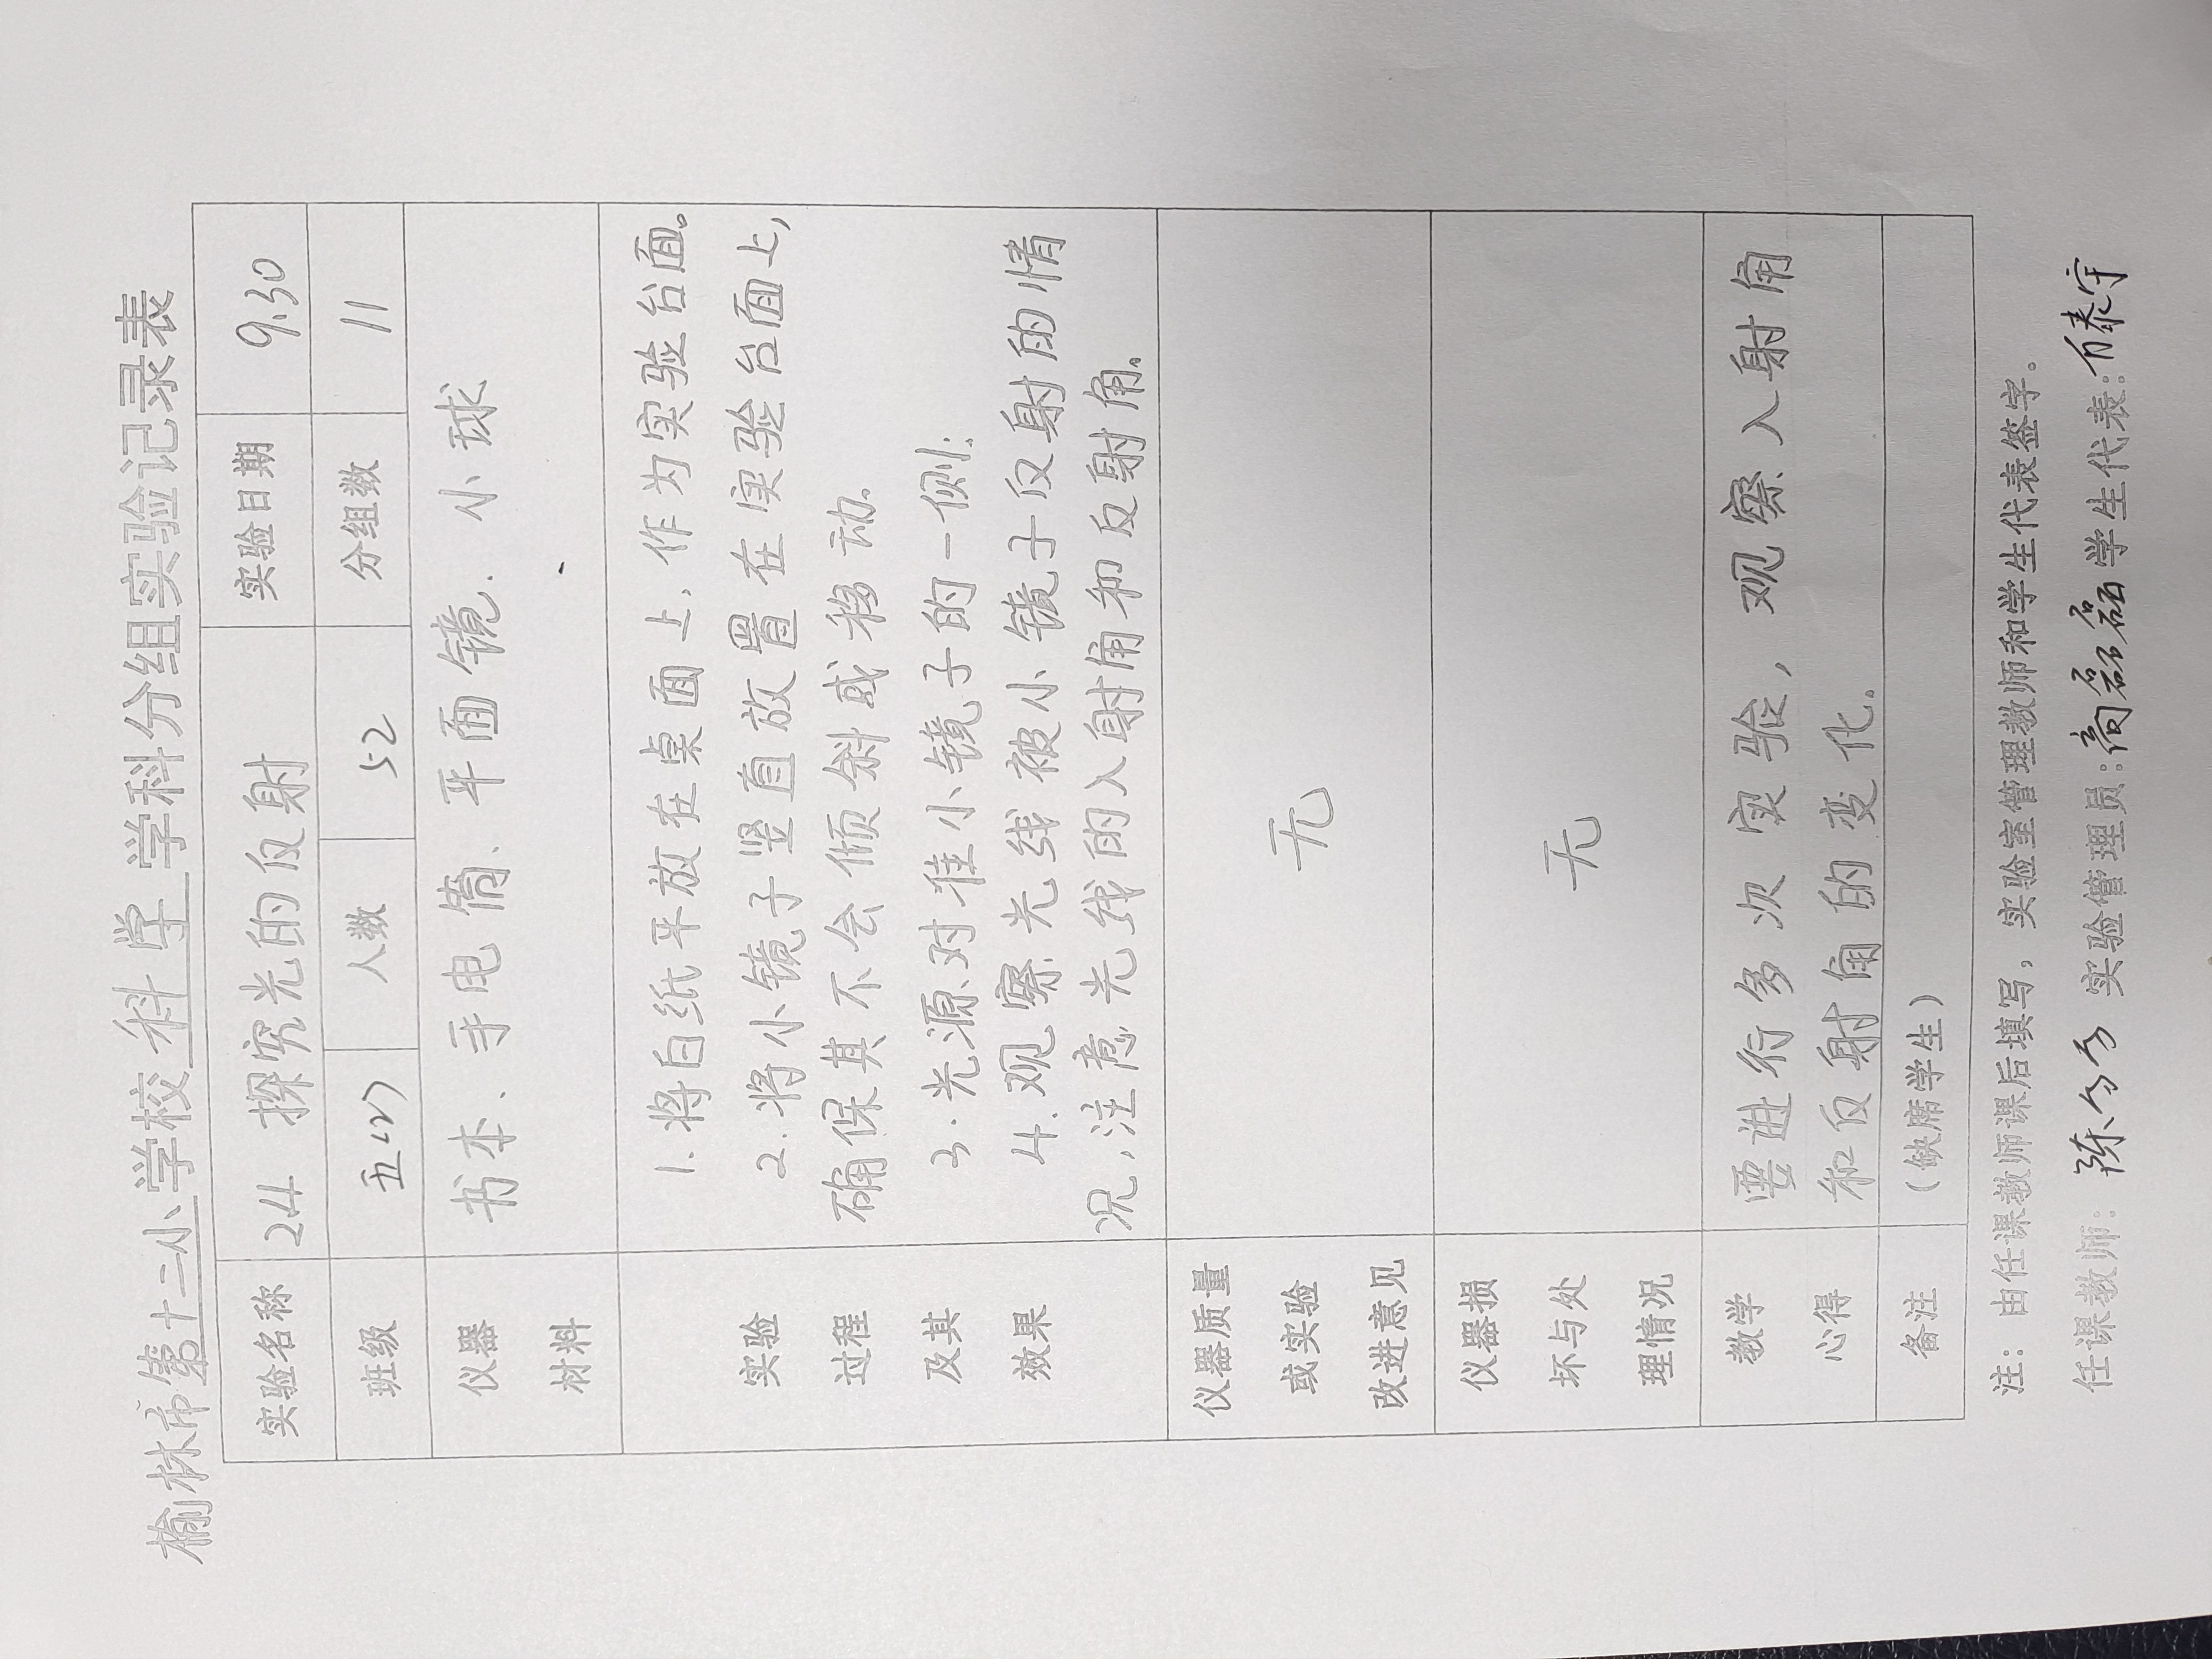 榆林市第十二小学校科学学科分组实验记录表
实验名称 24 探究光的反射 实验日期 9.30
班级 五(2) 人数 52 分组数 11
仪器 书本、手电筒、平面镜、小球
材料
1.将白纸平放在桌面上,作为实验台面。
实验 2.将小镜子竖直放置在实验台面上,
过程 确保其不会倾斜或移动。
及其 3.光源对准小镜子的一侧;
效果 4.观察光线被小镜子反射的情
况,注意光线的入射角和反射角。
仪器质量
或实验 无
改进意见
仪器损
坏与处 无
理情况
教学 要进行多次实验,观察入射角
心得 和反射角的变化。
备注 (缺席学生)
注:由任课教师课后填写,实验室管理教师和学生代表签字。
任课教师: 陈 实验管理员:高磊磊 学生代表: 泰宇